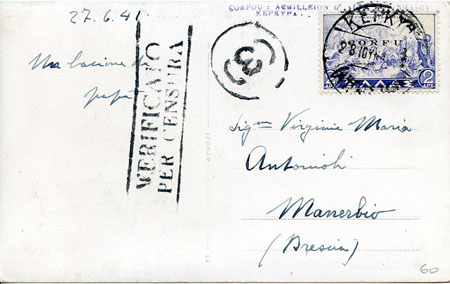 27.6.41
CORFOU: ACHILLEION
ΚΕΡΚΥΡΑ
Un bacione da
papà
VERIFICATO
PER CENSURA
3
ΚΕΡΚΥΡΑ
CORFU
2
ΕΛΛΑΣ
Sig.na Virginia Maria
Antonioli
Manerbio
(Brescia)
60